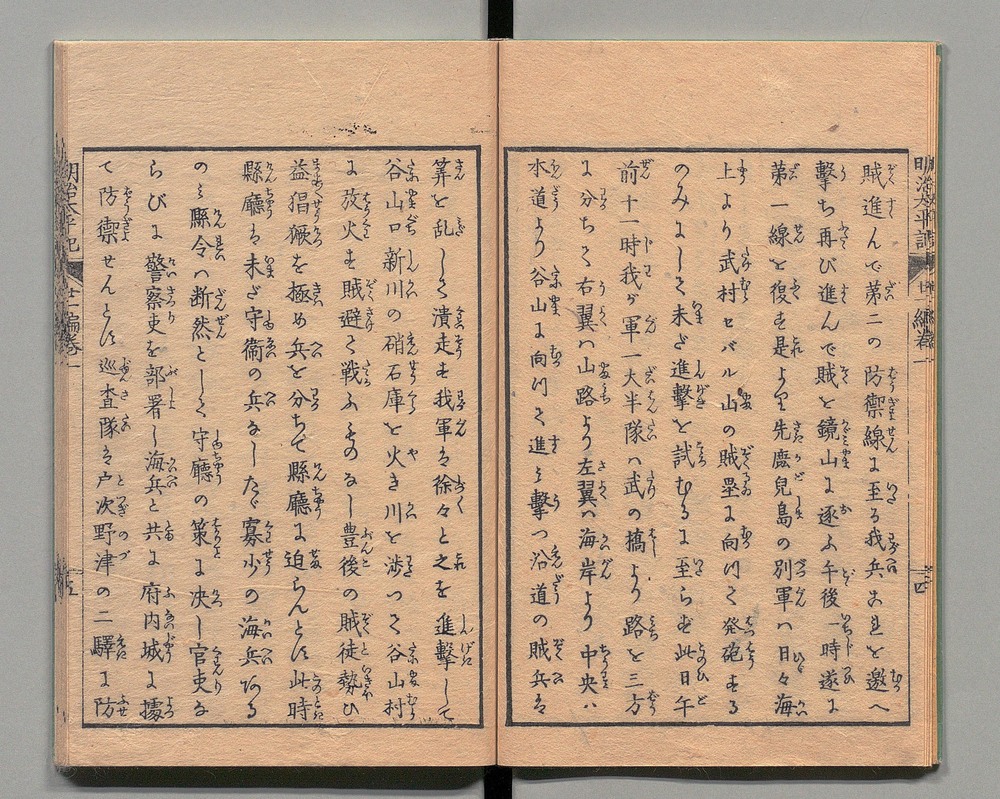 明治太平記 廿一編卷一 四
賊進んで第二の防禦線に至る我兵これを邀へ
擊ち再び進んで賊を鏡山に逐ふ午後一時遂に
第一線を復す是より先鹿兒島の別軍ハ日々海
上より武村セバル山の賊壘に向ひて発砲する
のみにして未だ進擊を試むるに至らず此日午
前十一時我が軍一大半隊ハ武の橋より路を三方
に分ちて右翼ハ山路より左翼ハ海岸より中央ハ
水道より谷山に向ひて進み擊つ沿道の賊兵る
筭を乱して潰走す我軍る徐々と之を進擊して
谷山口新川の硝石庫を火き川を渉つて谷山村
に放火す賊避て戦ふものなし豊後の賊徒勢ひ
益猖獗を極め兵を分ちて縣廳に迫らんとす此時
縣廳る未だ守衞の兵なしたゞ寡少の海兵ある
のミ縣令ハ断然として守廳の策に决し官吏な
らびに警察吏を部署し海兵と共に府内城に據
て防禦せんとす巡査隊る戸次野津の二驛に防
明治太平記 廿一編卷一 五